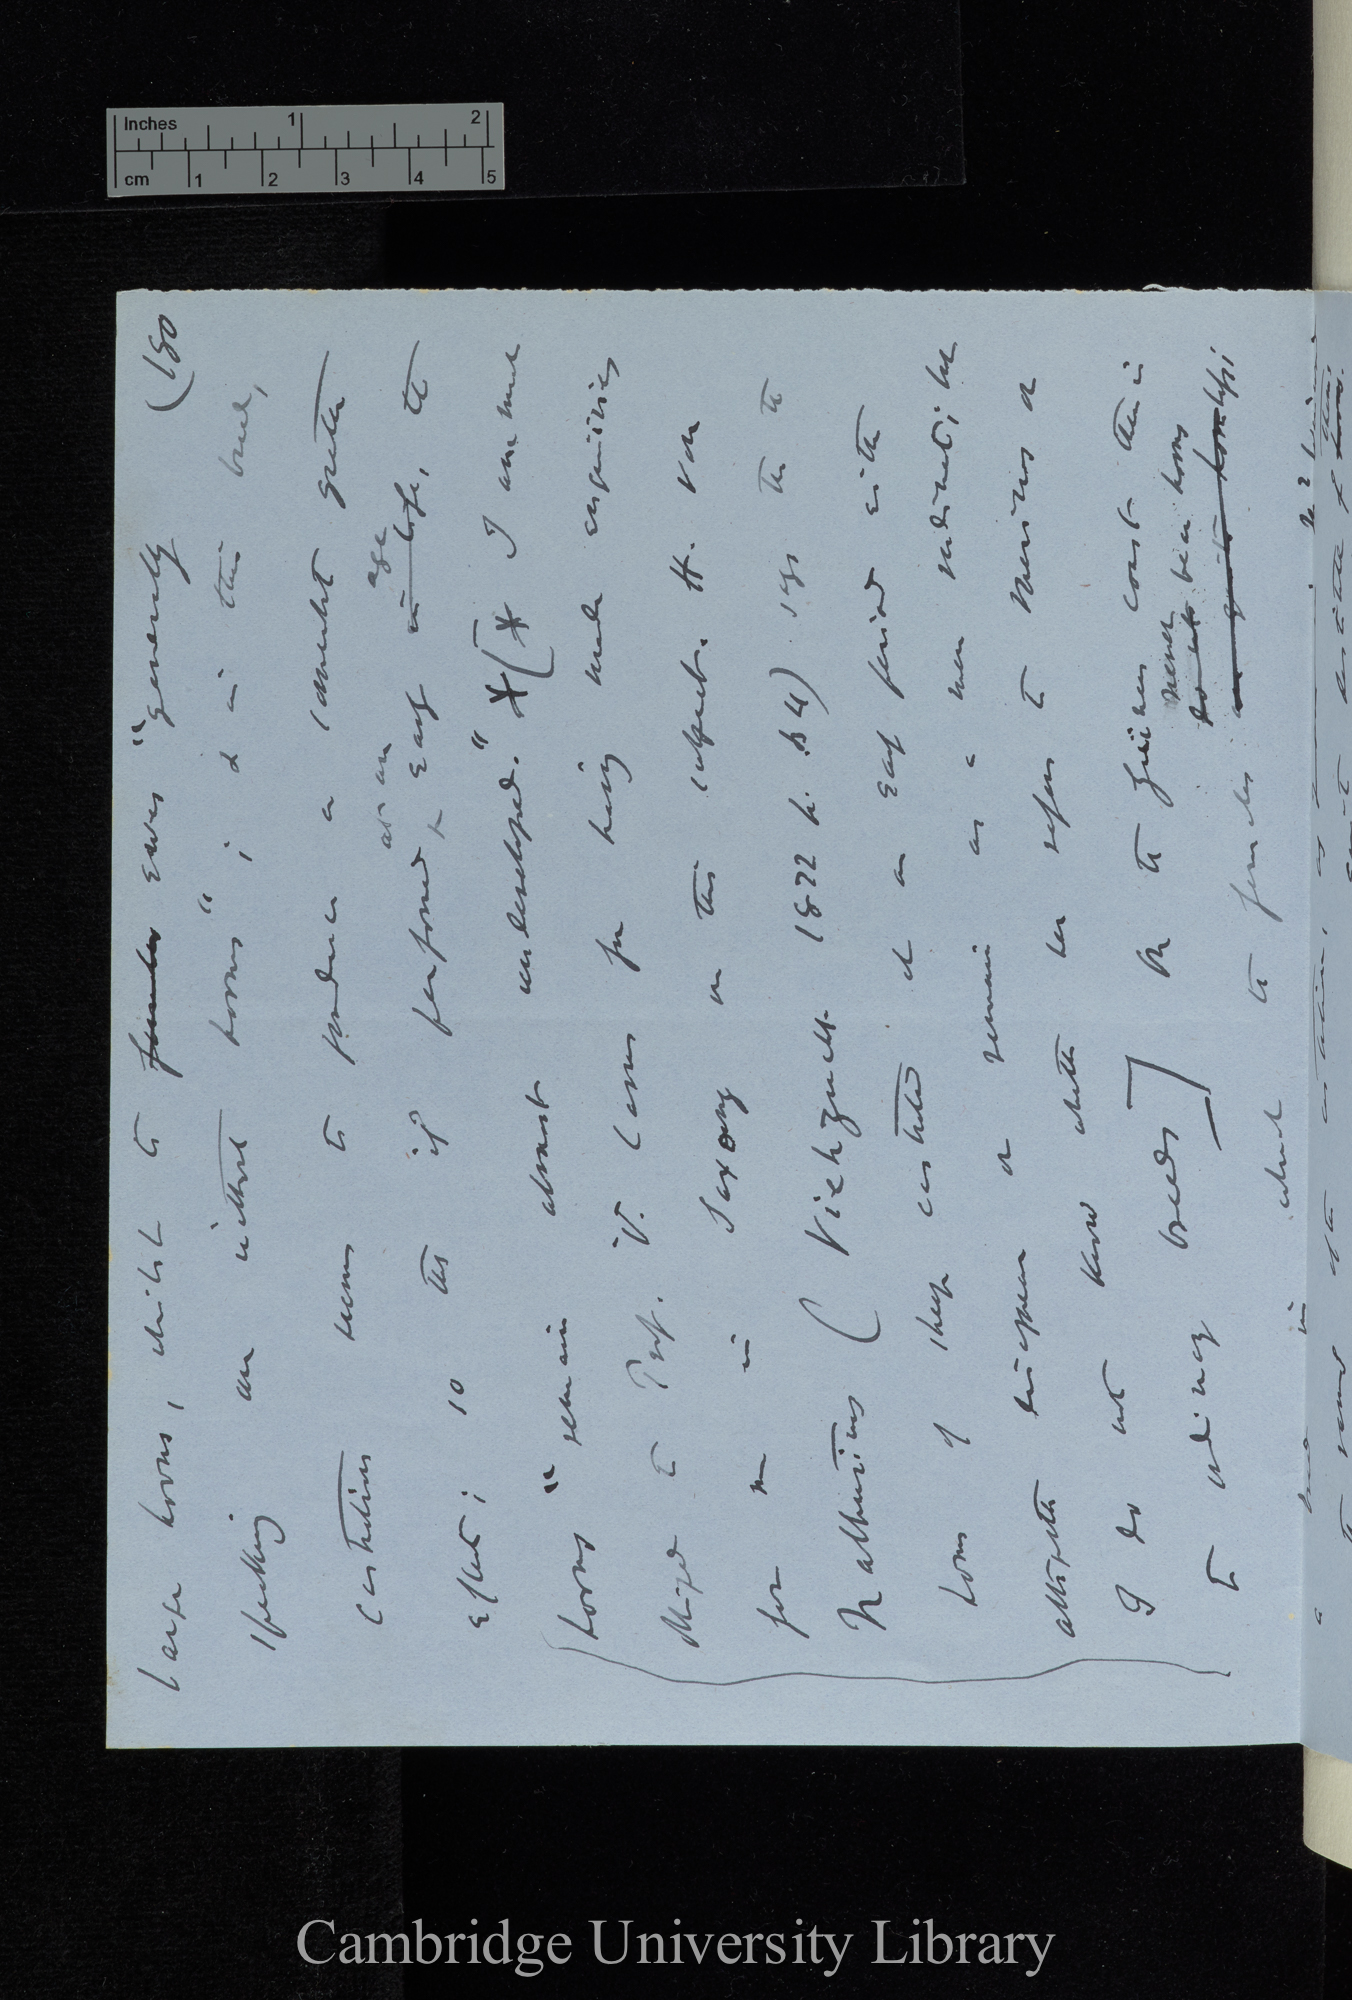 Inches
1
2
cm
1
2
3
4
5
(180
large horns, whilst the females ewes "generally
speaking are without horns"; & in this breed,
castration seems to produce a somewhat greater
at an
age
effect; so that if performed early in life, the
horns "remain almost undeveloped." * [* I am much
obliged to Prof. V. Carus for having made enquiries
for me in Saxony on this subject. H. von
Nathusius (Viehzucht 1872 p. 64) says that the
horns of sheep castrated at an early period either
altogether disappear or remain as a mere rudiment; but
I do not know whether he refers to Merinos or
to ordinary breeds] On the Guinea coast there is
never
bear horns
which the females
Cambridge University Library